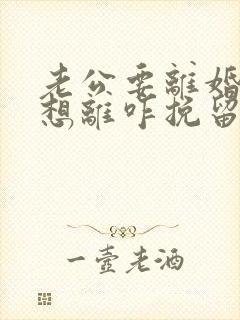 老公要離婚
想離咋挽留
一壺老酒